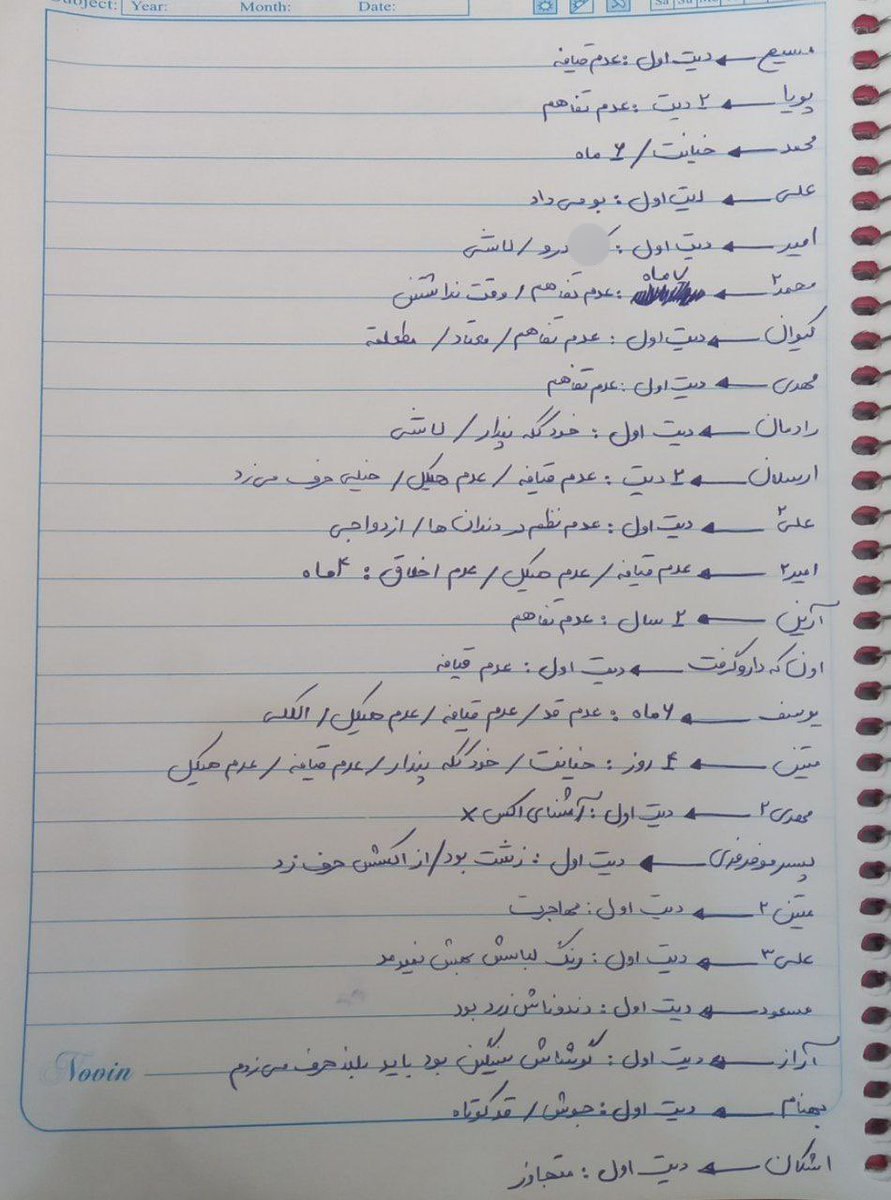 Subject: Year: Month: Date:
مسیح ← دیت اول : عدم قیافه
پویا ← ۲ دیت : عدم تفاهم
محمد ← خیانت / ۶ ماه
علی ← دیت اول : بو می داد
امیر ← دیت اول : درو / لاشی
محمد۲ ← ۷ ماه : عدم تفاهم / وقت نداشتن
کیوان ← دیت اول : عدم تفاهم / معتاد / مطلقه
مهدی ← دیت اول : عدم تفاهم
رادمان ← دیت اول : خودگنده پندار / لاشی
ارسلان ← ۲ دیت : عدم قیافه / عدم هیکل / خیلی حرف می زد
علی۲ ← دیت اول : عدم نظم در دندان ها / ازدواجی
امیر۲ ← عدم قیافه / عدم هیکل / عدم اخلاق : ۴ ماه
آرین ← ۲ سال : عدم تفاهم
اونکه دارو گرفت ← دیت اول : عدم قیافه
یوسف ← ۶ ماه : عدم قد / عدم قیافه / عدم هیکل / الکلی
متین ← ۴ روز : خیانت / خودگنده پندار / عدم قیافه / عدم هیکل
مهدی۲ ← دیت اول : آشنای اکس x
پسر موفرفری ← دیت اول : زشت بود / از اکسش حرف زد
متین۲ ← دیت اول : مهاجرت
علی۳ ← دیت اول : رنگ لباسش بهش نمیومد
مسعود ← دیت اول : دندوناش زرد بود
آراز ← دیت اول : گوشاش سنگین بود باید بلند حرف می زدم
Novin
بهنام ← دیت اول : جوش / قد کوتاه
اشکان ← دیت اول : متجاوز